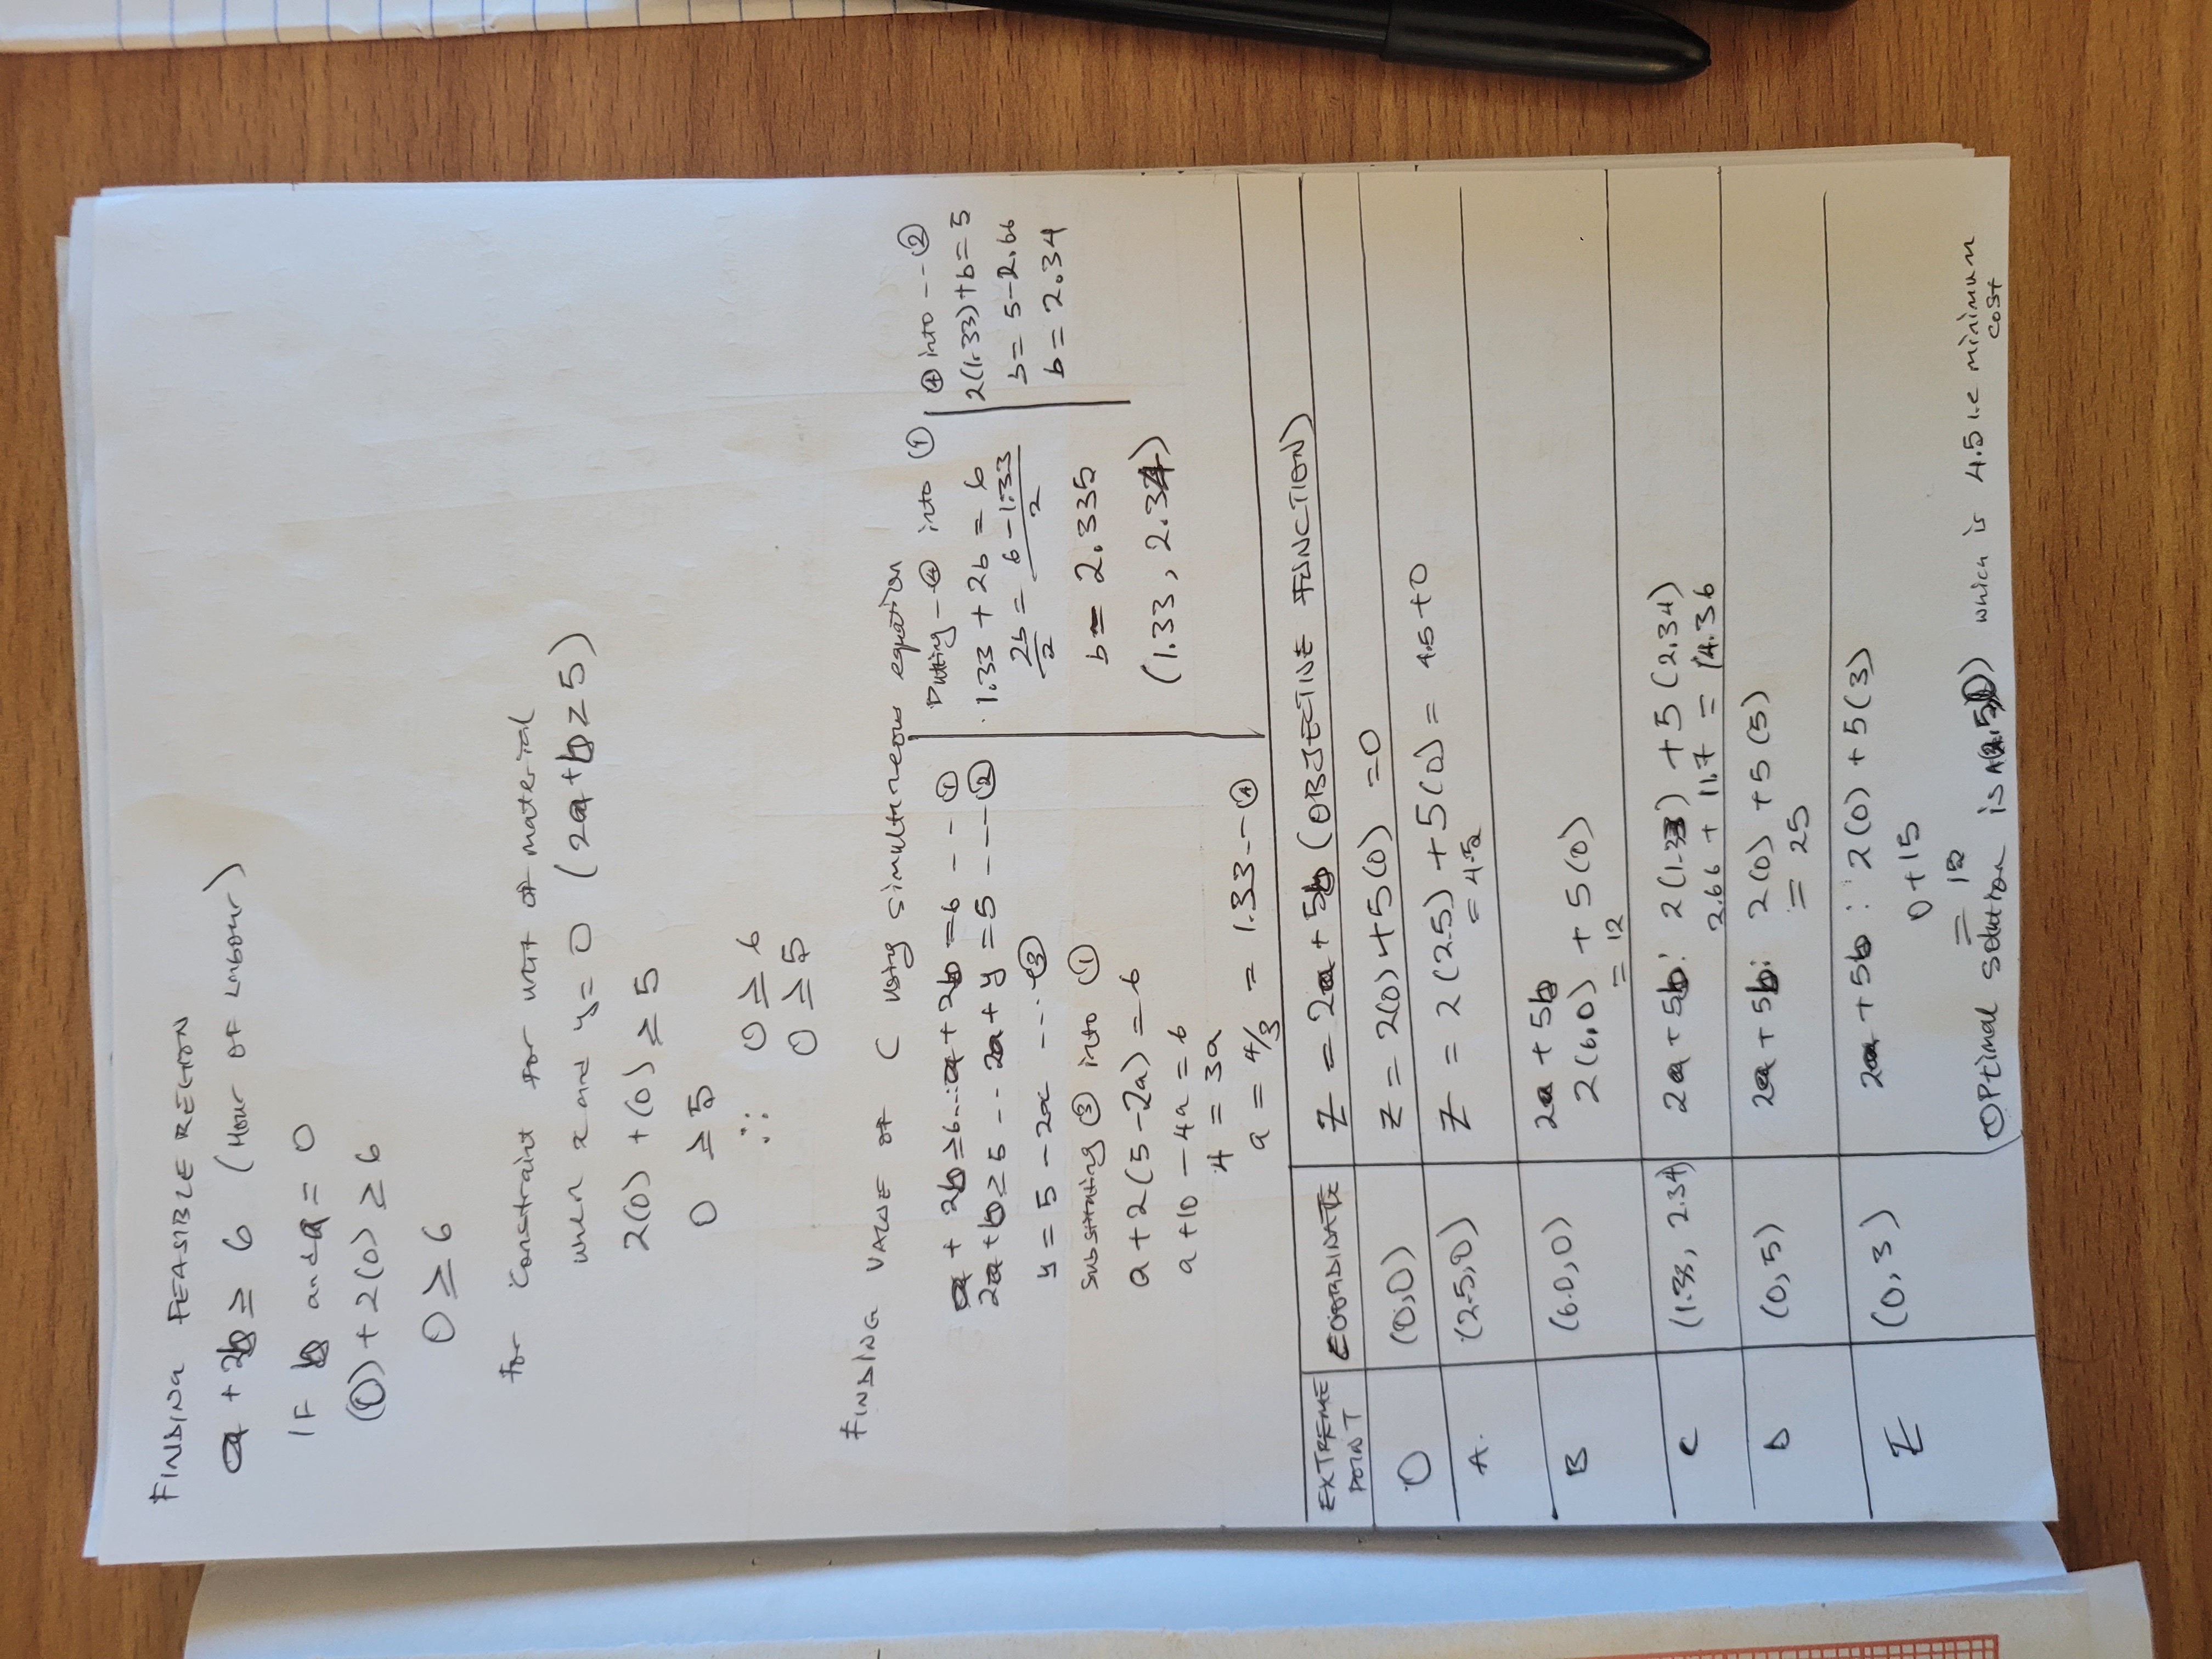 FINDING FEASIBLE REGION
a + 2b ≥ 6 (Hour OF Labour)
IF b and a = 0
(0) + 2(0) ≥ 6
0 ≥ 6
For Constraint for unit of material
when x and y = 0 (2a + b ≥ 5)
2(0) + (0) ≥ 5
0 ≥ 5
∴ 0 ≥ 6
0 ≥ 5
FINDING VALUE OF C using simultaneous equation
a + 2b ≥ 6 ... a + 2b = 6 -- ①
2a + b ≥ 5 -- 2a + y = 5 --- ②
y = 5 - 2x --- ③
Substituting ③ into ①
a + 2(5 - 2a) = 6
a + 10 - 4a = 6
4 = 3a
a = 4/3 = 1.33 -- ④
Putting -- ④ into ①
1.33 + 2b = 6
2b/2 = 6 - 1.33/2
b = 2.335
(1.33, 2.34)
④ into -- ②
2(1.33) + b = 5
b = 5 - 2.66
b = 2.34
EXTREME POINT | COORDINATE | Z = 2a + 5b (OBJECTIVE FUNCTION)
O | (0,0) | Z = 2(0) + 5(0) = 0
A. | (2.5,0) | Z = 2(2.5) + 5(0) = 4.5 + 0
= 4.5
B | (6.0,0) | 2a + 5b
2(6.0) + 5(0)
= 12
C | (1.33, 2.34) | 2a + 5b: 2(1.33) + 5(2.34)
2.66 + 11.7 = 14.36
D | (0,5) | 2a + 5b: 2(0) + 5(5)
= 25
E | (0,3) | 2a + 5b: 2(0) + 5(3)
0 + 15
= 15
Optimal solution is A(2.5,0) which is 4.5 i.e minimum
cost